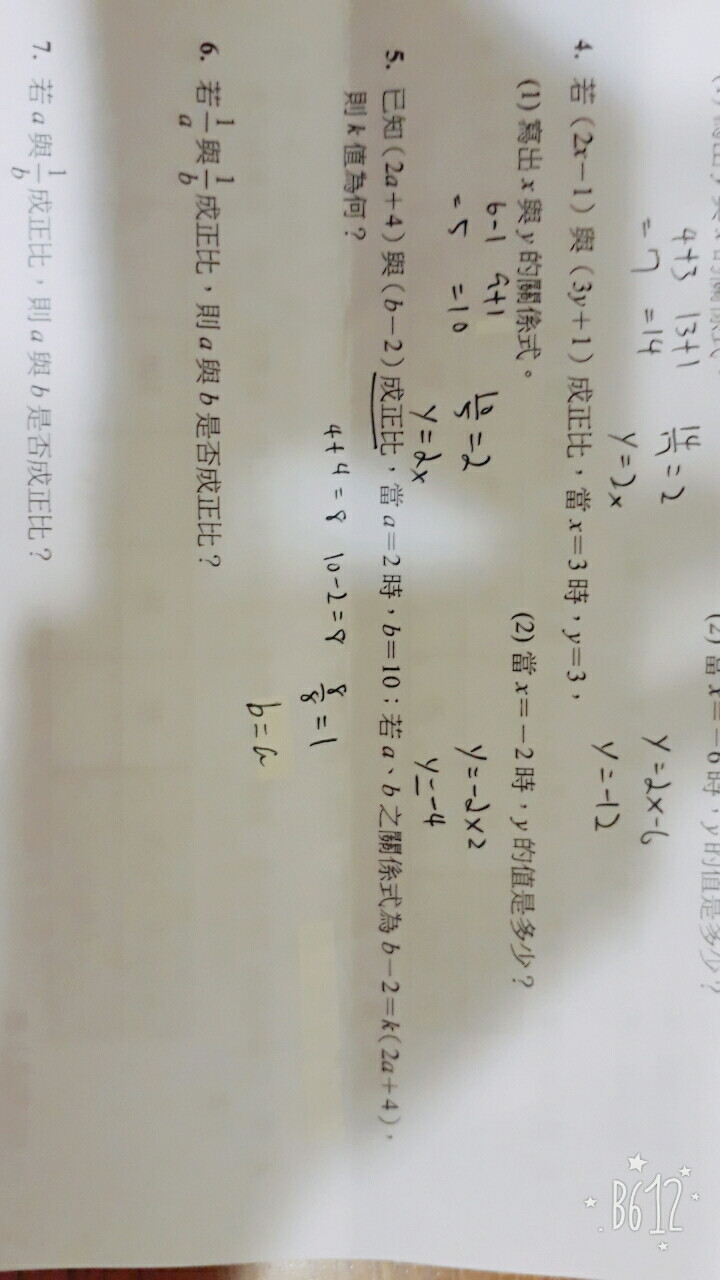 4+3 13+1 14/7=2 y=2x-6
=7 =14 y=2x y=-12
4. 若(2x-1)與(3y+1)成正比,當x=3時,y=3,
(1) 寫出x與y的關係式。 (2) 當x=-2時,y的值是多少?
6-1 9+1 10/5=2 y=-2x2
=5 =10 y=2x y=-4
5. 已知(2a+4)與(b-2)成正比,當a=2時,b=10;若a、b之關係式為b-2=k(2a+4),
則k值為何?
4+4=8 10-2=8 8/8=1
b=a
6. 若1/a與1/b成正比,則a與b是否成正比?
7. 若a與1/b成正比,則a與b是否成正比?
B612